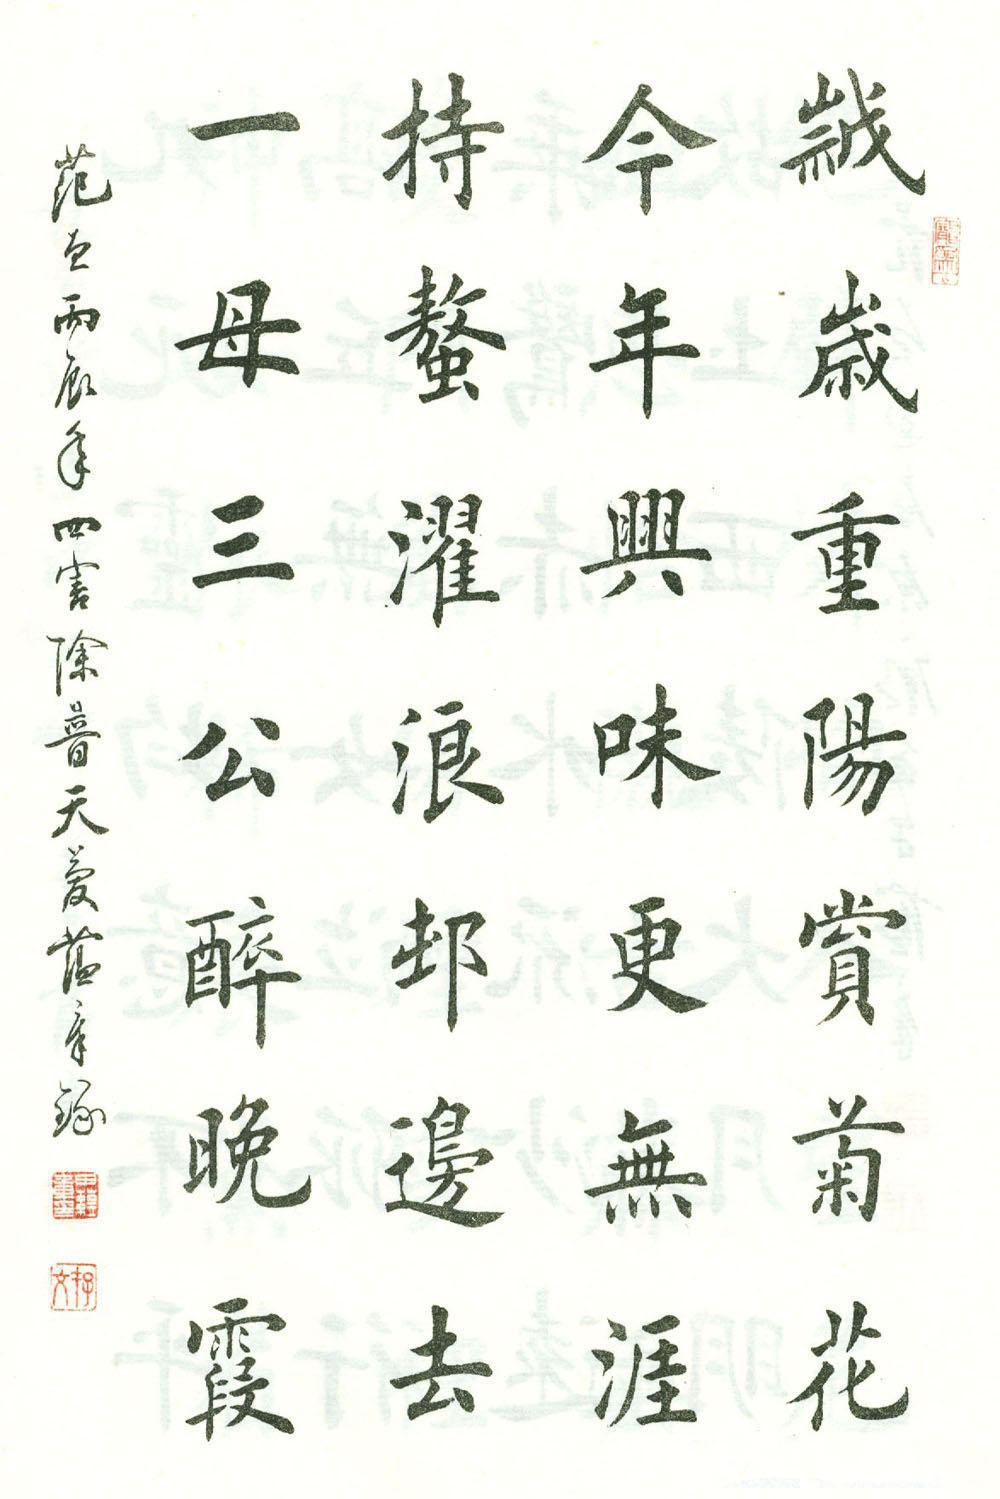 歲歲重陽賞菊花
今年興味更無涯
持螯濯浪邨邊去
一母三公醉晚霞
丙辰年四害除普天慶